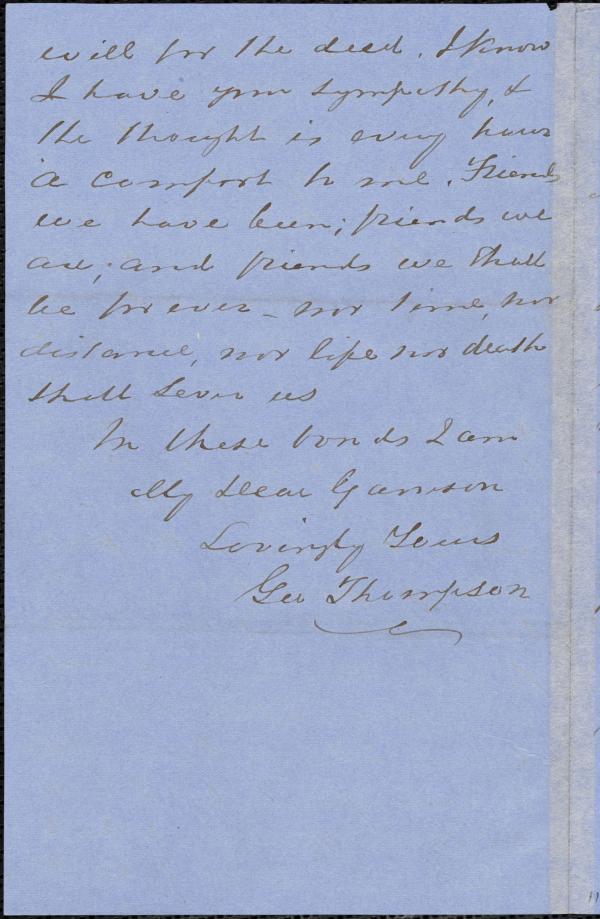 will for the deed. I know
I have your sympathy, &
the thought is every hour
a comfort to me. Friends
we have been; friends we
are; and friends we shall
be for ever - nor time, nor
distance, nor life nor death
shall sever us
In these bonds I am
My Dear Garrison
Lovingly Yours
Geo Thompson